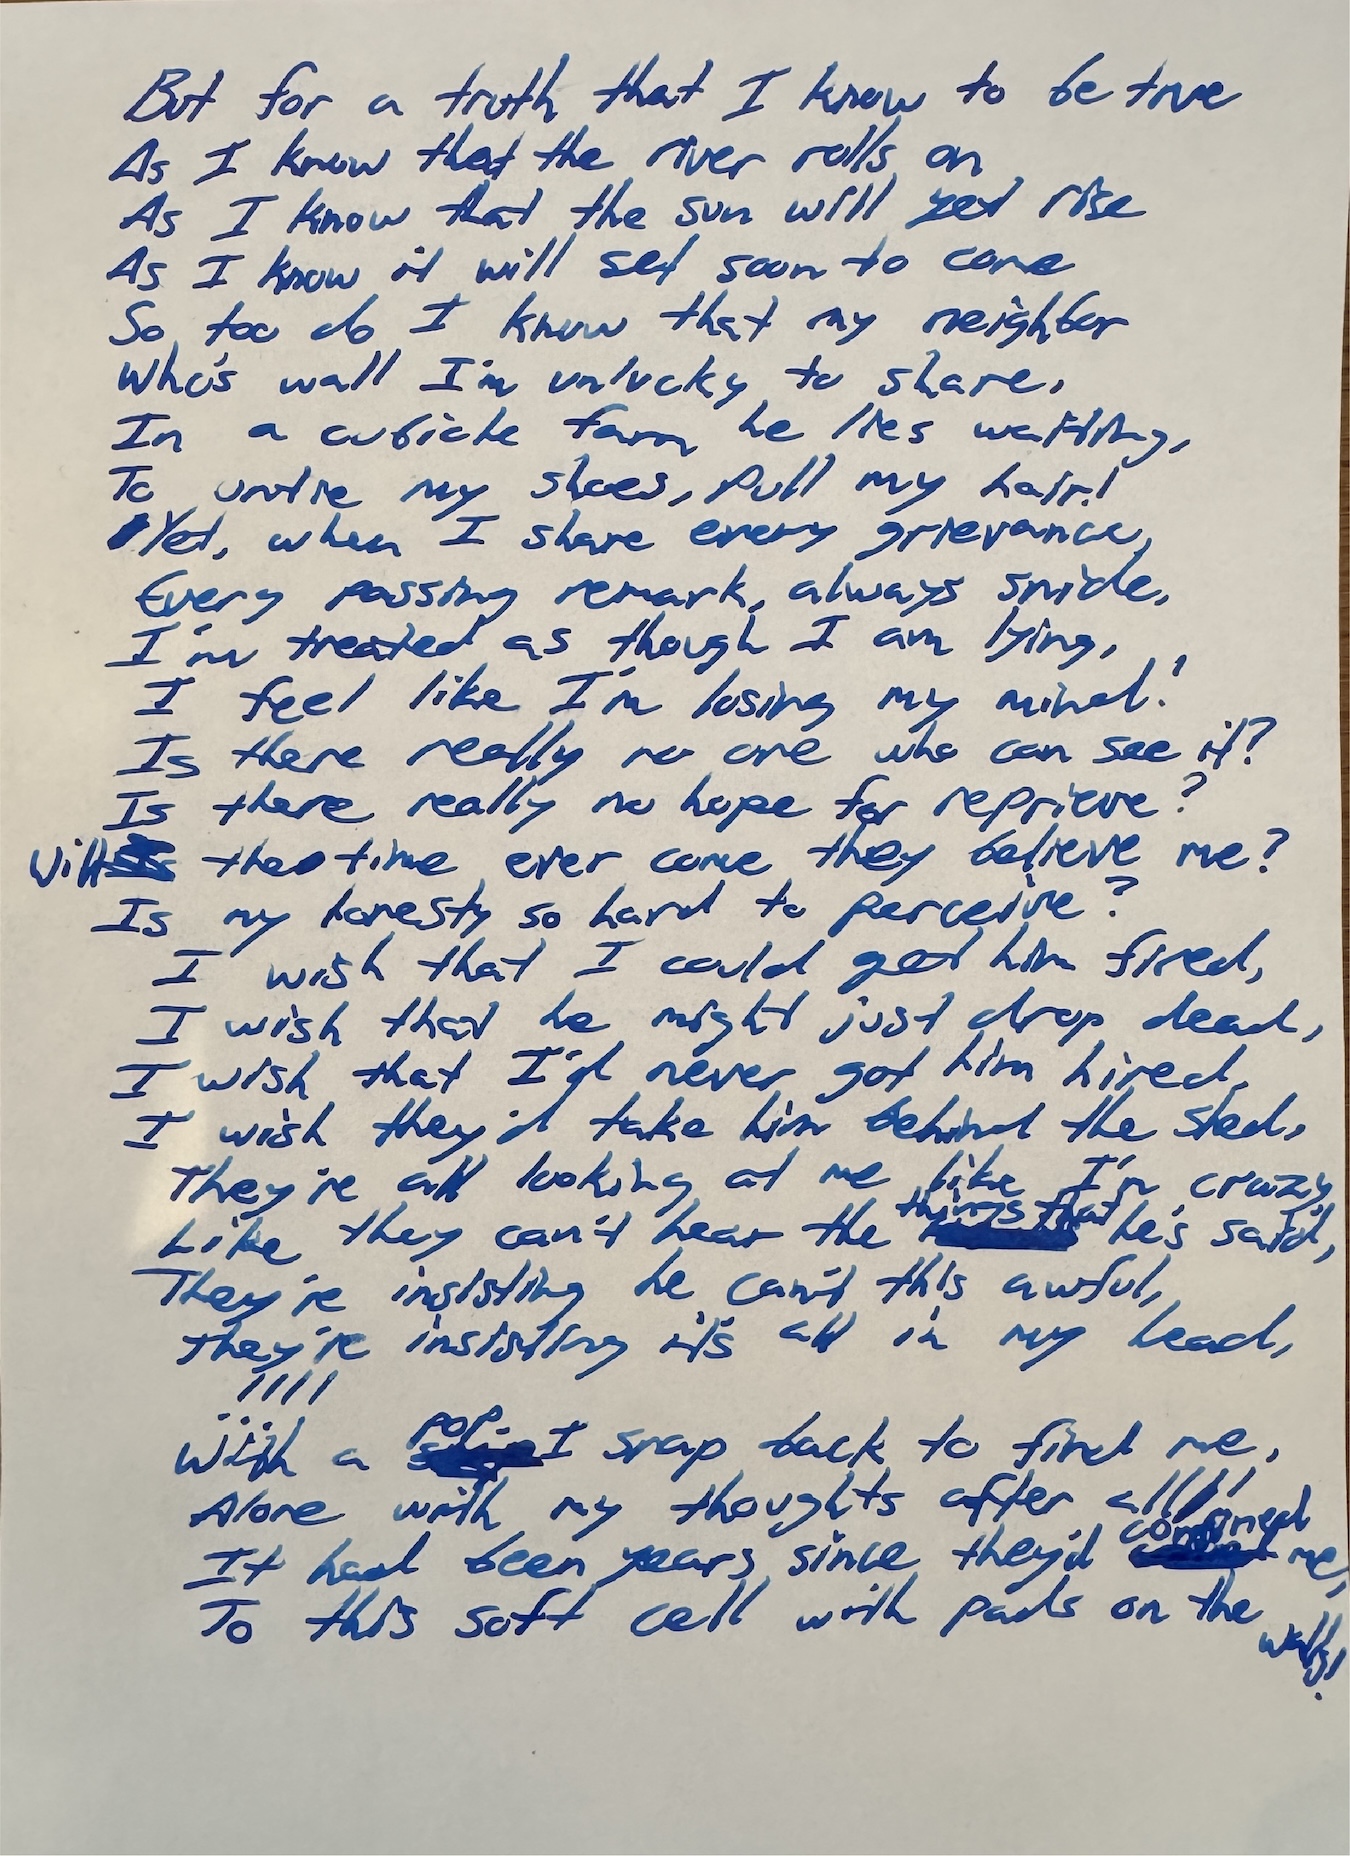 But for a truth that I know to be true
As I know that the river rolls on
As I know that the sun will yet rise
As I know it will set soon to come
So too do I know that my neighbor
Who's wall I'm unlucky to share,
In a cubicle farm he lies waiting,
To untie my shoes, Pull my hair!
Yet, when I share every grievance,
Every passing remark, always snide,
I'm treated as though I am lying,
I feel like I'm losing my mind!
Is there really no one who can see it?
Is there really no hope for reprieve?
Will the time ever come they believe me?
Is my honesty so hard to perceive?
I wish that I could get him fired,
I wish that he might just drop dead,
I wish that I'd never got him hired,
I wish they'd take him behind the shed,
They're all looking at me like I'm crazy,
Like they can't hear the things that he's said,
They're insisting he can't this awful,
They're insisting it's all in my head,
!!!!
With a pop I snap back to find me,
Alone with my thoughts after all!!!!
It had been years since they'd confined me,
To this soft cell with pads on the walls!